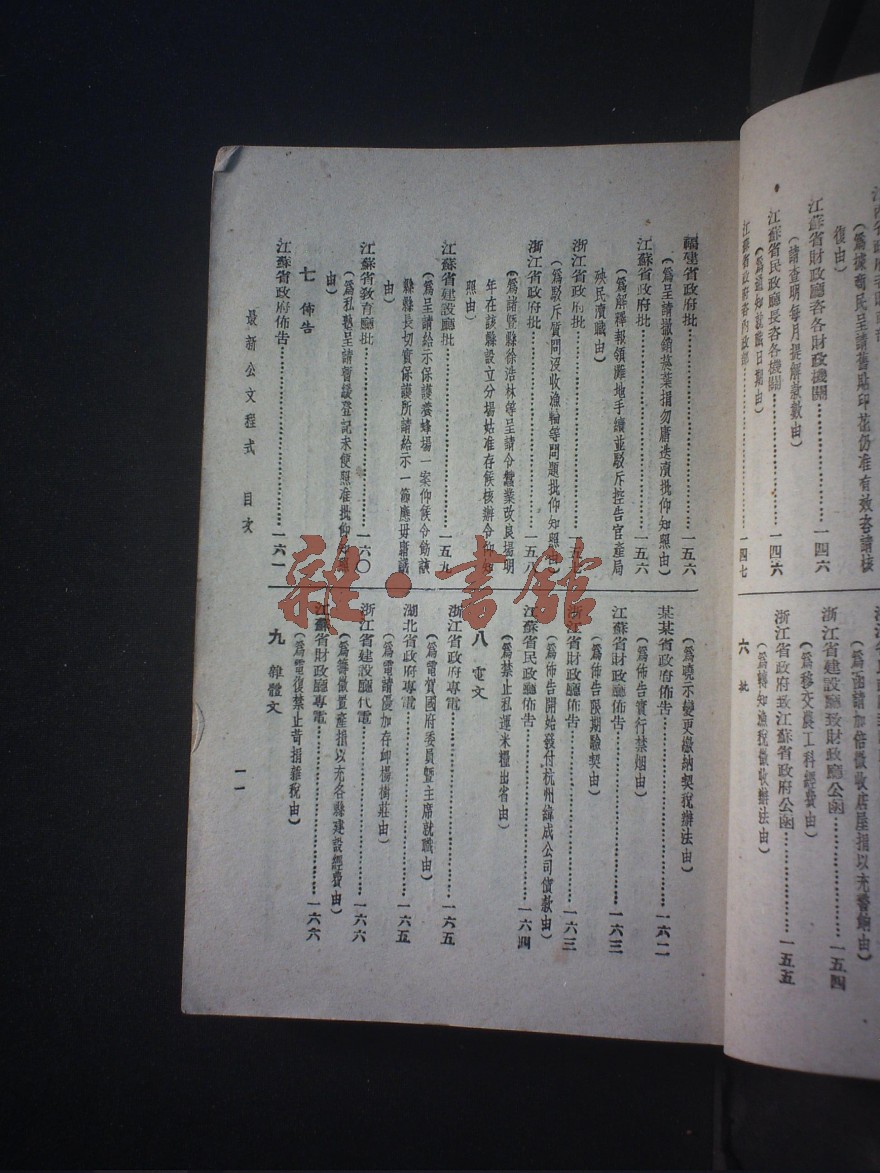 復由）
江蘇省財政廳咨各財政機關……一四六
（請查明每月提解款數由）
江蘇省民政廳長咨各機關……一四六
（爲通知就職日期由）
江蘇省政府咨內政部……一四七
浙江省建設廳致財政廳公函……一五四
（爲移交農工科經費由）
浙江省政府致江蘇省政府公函……一五五
（爲轉知漁稅徵收辦法由）
六 批
福建省政府批……一五六
（爲呈請撤銷蒸葉捐勿庸迭瀆批仰知照由）
江蘇省政府批……一五六
（爲解釋報領灘地手續並駁斥控告官產局
殃民瀆職由）
浙江省政府批……一五七
（爲駁斥質問沒收漁輪等問題批仰知照由）
浙江省政府批……一五八
（爲諸暨縣徐浩林等呈請令蠶業改良場明
年在該縣設立分場姑准存候核辦令仰知
照由）
江蘇省建設廳批……一五九
（爲呈請給示保護養蜂場一案仰候令飭該
縣縣長切實保護所請給示一節應毋庸議
由）
江蘇省教育廳批……一六〇
（爲私塾呈請暫緩登記未便照准批仰知照
由）
七 佈告
江蘇省政府佈告……一六一
（爲曉示變更繳納契稅辦法由）
某某省政府佈告……一六二
（爲佈告實行禁烟由）
江蘇省財政廳佈告……一六三
（爲佈告限期驗契由）
浙江省財政廳佈告……一六三
（爲佈告開始發付杭州緯成公司債款由）
江蘇省民政廳佈告……一六四
（爲禁止私運米糧出省由）
八 電文
浙江省政府專電……一六五
（爲電賀國府委員暨主席就職由）
湖北省政府專電……一六五
（爲電請優加存卹楊樹莊由）
浙江省建設廳代電……一六六
（爲籌徵置產捐以充各縣建設經費由）
江蘇省財政廳專電……一六六
（爲電復禁止苛捐雜稅由）
九 雜體文
最新公文程式 目次
一一
雜·書館